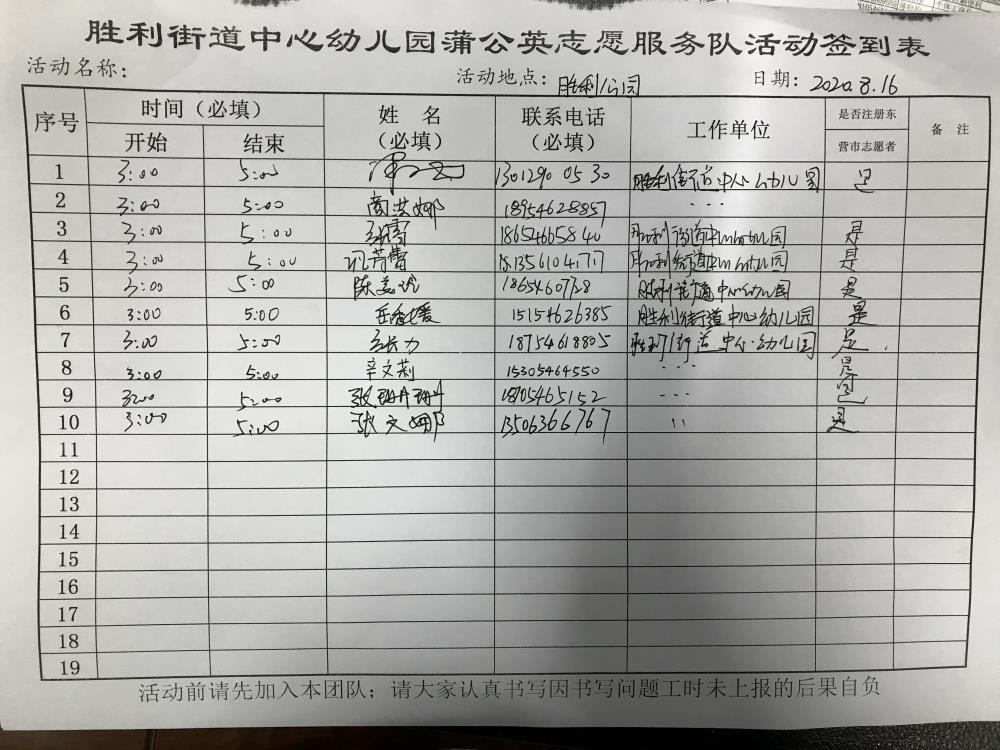 胜利街道中心幼儿园蒲公英志愿服务队活动签到表
活动名称: 活动地点: 胜利公园 日期: 2020.8.16
序号 时间（必填） 姓 名（必填） 联系电话（必填） 工作单位 是否注册东营市志愿者 备 注
开始 结束
1 3:00 5:00 13012900530 胜利街道中心幼儿园 是
2 3:00 5:00 商洪娜 18954628857 ...
3 3:00 5:00 18654665840 胜利街道中心幼儿园 是
4 3:00 5:00 胜利街道中心幼儿园 是
5 3:00 5:00 陈 胜利街道中心幼儿园 是
6 3:00 5:00 岳 媛 15154626385 胜利街道中心幼儿园 是
7 3:00 5:00 18754618805 胜利街道中心幼儿园 是.
8 3:00 5:00 辛文莉 15305464550 ... 是
9 3:00 5:00 张珊珊 18105465152 ... 是
10 3:00 5:00 张文娜 13506366767 " 是
11
12
13
14
15
16
17
18
19
活动前请先加入本团队；请大家认真书写因书写问题工时未上报的后果自负